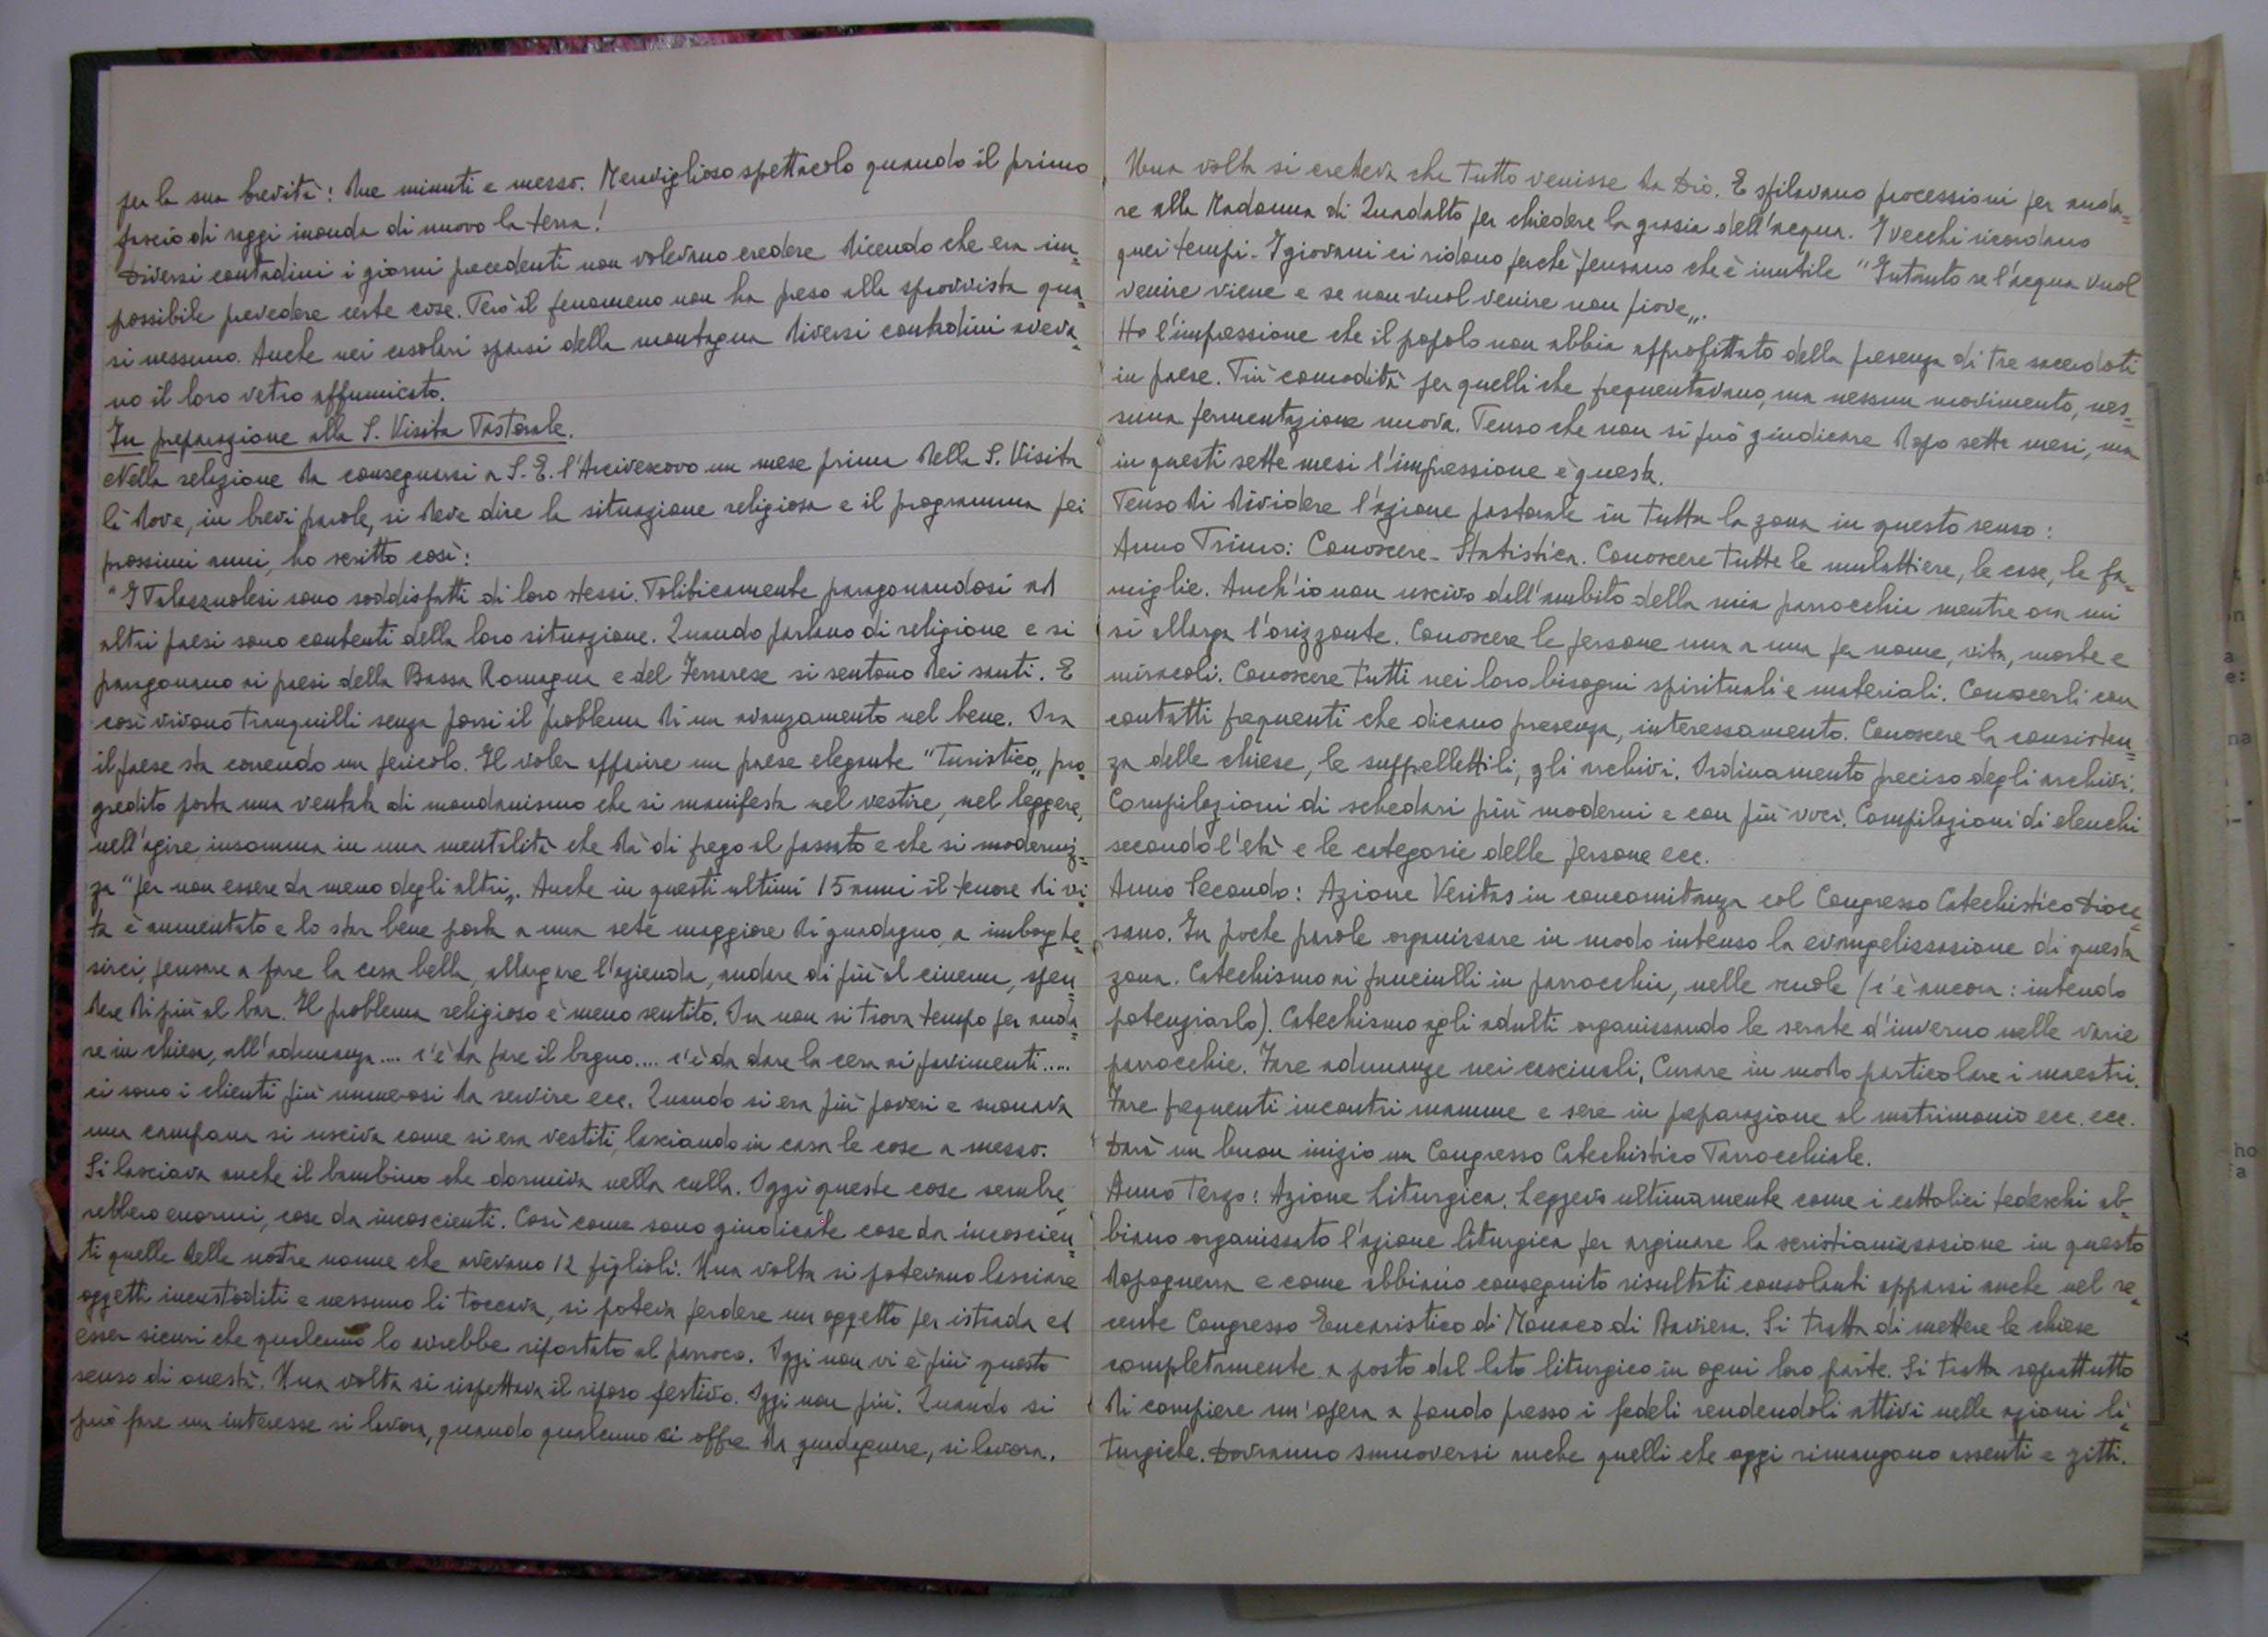 per la sua brevità: due minuti e mezzo. Meraviglioso spettacolo quando il primo
fascio di raggi inonda di nuovo la terra!
Diversi contadini i giorni precedenti non volevano credere dicendo che era im=
possibile prevedere certe cose. Però il fenomeno non ha preso alla sprovvista qua=
si nessuno. Anche nei casolari sparsi della montagna diversi contadini aveva=
no il loro vetro affumicato.
In preparazione alla S. Visita Pastorale.
Nella relazione da consegnarsi a S. E. l'Arcivescovo un mese prima della S. Visita
là dove, in brevi parole, si deve dire la situazione religiosa e il programma pei
prossimi anni, ho scritto così:
"I Palazzuolesi sono soddisfatti di loro stessi. Politicamente paragonandosi ad
altri paesi sono contenti della loro situazione. Quando parlano di religione e si
paragonano ai paesi della Bassa Romagna e del Ferrarese si sentono dei santi. E
così vivono tranquilli senza porsi il problema di un avanzamento nel bene. Ora
il paese sta correndo un pericolo. Il voler apparire un paese elegante "turistico„ pro=
gredito porta una ventata di mondanismo che si manifesta nel vestire, nel leggere,
nell'agire, insomma in una mentalità che dà di frego al passato e che si moderniz=
za "per non essere da meno degli altri„. Anche in questi ultimi 15 anni il tenore di vi=
ta è aumentato e lo star bene porta a una sete maggiore di guadagno, a imborghe=
sirci, pensare a fare la casa bella, allargare l'azienda, andare di più al cinema, spen=
dere di più al bar. Il problema religioso è meno sentito. Ora non si trova tempo per anda=
re in chiesa, all'adunanza.... c'è da fare il bagno.... c'è da dare la cera ai pavimenti.....
ci sono i clienti più numerosi da servire ecc. Quando si era più poveri e suonava
una campana si usciva come si era vestiti, lasciando in casa le cose a mezzo.
Si lasciava anche il bambino che dormiva nella culla. Oggi queste cose sembre=
rebbero enormi, cose da incoscienti. Così come sono giudicate cose da incoscien=
ti quelle delle nostre nonne che avevano 12 figlioli. Una volta si potevano lasciare
oggetti incustoditi e nessuno li toccava, si poteva perdere un oggetto per istrada ed
esser sicuri che qualcuno lo avrebbe riportato al parroco. Oggi non vi è più questo
senso di onestà. Una volta si rispettava il riposo festivo. Oggi non più. Quando si
può fare un interesse si lavora, quando qualcuno ci offre da guadagnare, si lavora.
Una volta si credeva che tutto venisse da Dio. E sfilavano processioni per anda=
re alla Madonna di Quadalto per chiedere la grazia dell'acqua. I vecchi ricordano
quei tempi. I giovani ci ridono perché pensano che è inutile "Intanto se l'acqua vuol
venire viene e se non vuol venire non piove„.
Ho l'impressione che il popolo non abbia approfittato della presenza di tre sacerdoti
in paese. Più comodità per quelli che frequentavano, ma nessun movimento, nes=
suna fermentazione nuova. Penso che non si può giudicare dopo sette mesi, ma
in questi sette mesi l'impressione è questa.
Penso di dividere l'azione pastorale in tutta la zona in questo senso:
Anno Primo: Conoscere - Statistica. Conoscere tutte le mulattiere, le case, le fa=
miglie. Anch'io non uscivo dall'ambito della mia parrocchia mentre ora mi
si allarga l'orizzonte. Conoscere le persone una a una per nome, vita, morte e
miracoli. Conoscere tutti nei loro bisogni spirituali e materiali. Conoscerli con
contatti frequenti che dicano presenza, interessamento. Conoscere la consisten=
za delle chiese, le suppellettili, gli archivi. Ordinamento preciso degli archivi.
Compilazioni di schedari più moderni e con più voci. Compilazioni di elenchi
secondo l'età e le categorie delle persone ecc.
Anno Secondo: Azione Veritas in concomitanza col Congresso Catechistico Dioce=
sano. In poche parole organizzare in modo intenso la evangelizzazione di questa
zona. Catechismo ai fanciulli in parrocchia, nelle scuole (c'è ancora: intendo
potenziarlo). Catechismo agli adulti organizzando le serate d'inverno nelle varie
parrocchie. Fare adunanze nei cascinali. Curare in modo particolare i maestri.
Fare frequenti incontri mamme e sere in preparazione al matrimonio ecc. ecc.
Darà un buon inizio un Congresso Catechistico Parrocchiale.
Anno Terzo: Azione Liturgica. Leggevo ultimamente come i cattolici tedeschi ab=
biano organizzato l'azione liturgica per arginare la scristianizzazione in questo
dopoguerra e come abbiano conseguito risultati consolanti apparsi anche nel re=
cente Congresso Eucaristico di Monaco di Baviera. Si tratta di mettere le chiese
completamente a posto dal lato liturgico in ogni loro parte. Si tratta soprattutto
di compiere un'opera a fondo presso i fedeli rendendoli attivi nelle azioni li=
turgiche. Dovranno smuoversi anche quelli che oggi rimangono assenti e zitti.